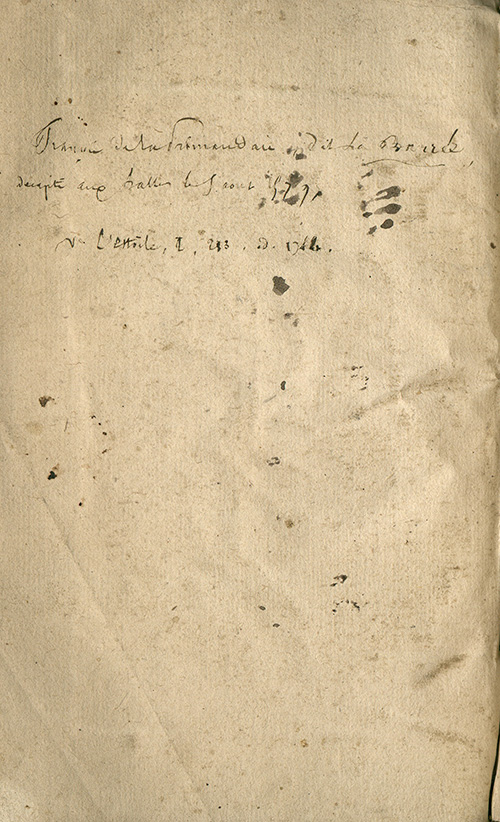 François de la Primaudaie dit La Barrée,
decapité aux halles le 5. aout 1579,
V. L'Estoile, I, 213. ed. 1744.